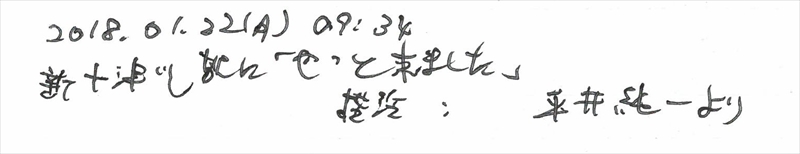 2018.01.22(月) 09:34
新十津川駅に「やっと来ました」
横浜: 平井純一より